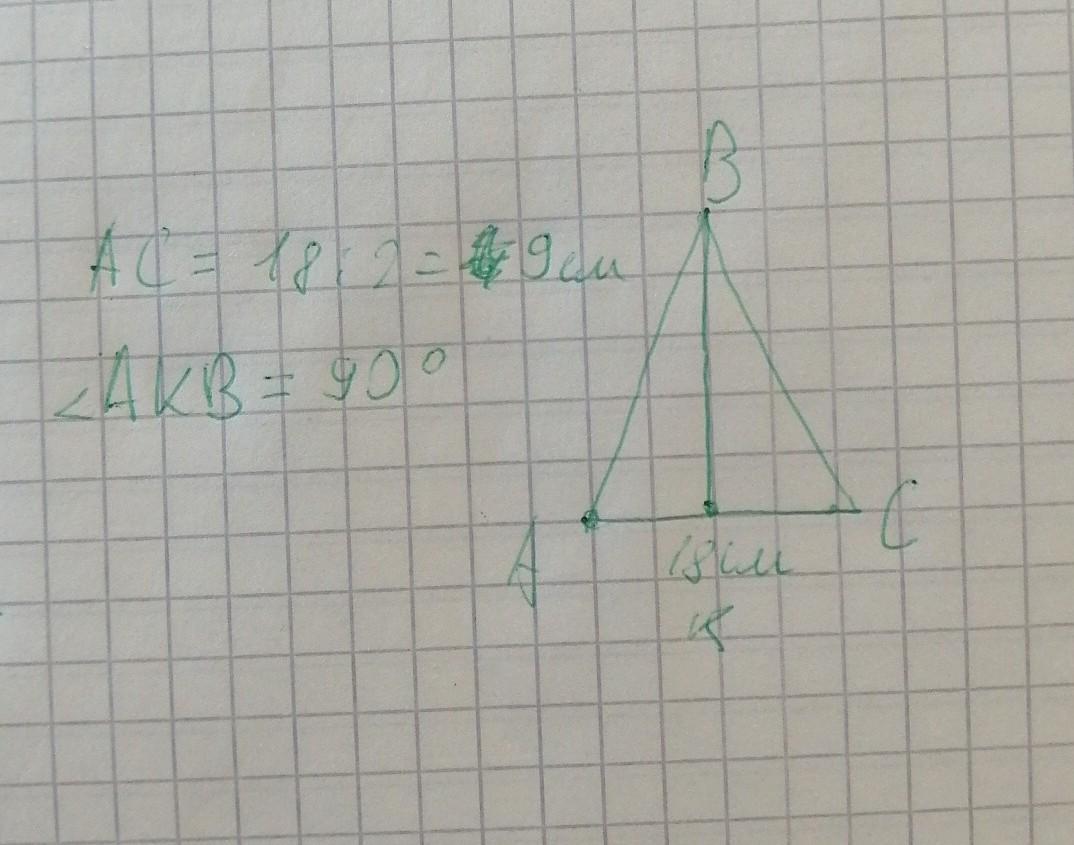 B
AC = 18 : 2 = 9 см
<AKB = 90°
A
C
18 см
K